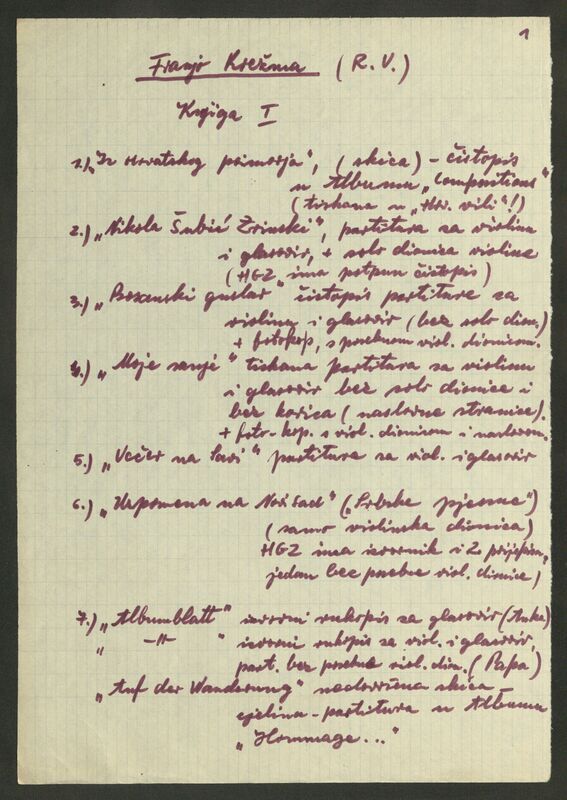 1
Franjo Krežma (R.V.)
Knjiga I
1.) "Iz Hrvatskog primorja", (skica) - čistopis
u Albumu "Compositions"
(tiskana u "Hrv. vili"!)
2.) "Nikola Šubić Zrinski", partitura za violinu
i glasovir, + solo dionica violine
(HGZ ima potpun čistopis)
3.) "Bosanski guslar" čistopis partiture za
violinu i glasovir (bez solo dion.)
+ fotokop. s posebnom viol. dionicom.
4.) "Moje sanje" tiskana partitura za violinu
i glasovir bez solo dionice i
bez korica (naslovne stranice).
+ foto-kop. s viol. dionicom i naslovom.
5.) "Večer na Savi" partitura za viol. i glasovir
6.) "Uspomena na Novi Sad" ("Srbske pjesme")
(samo violinska dionica)
HGZ ima izvornik i 2 prijepisa,
jedan bez posebne viol. dionice)
7.) "Albumblatt" izvorni rukopis za glasovir (Anka)
" -"- " izvorni rukopis za viol. i glasovir,
part. bez posebne viol. dion. (Papa)
"Auf der Wanderung" nedovršena skica
cjelina - partitura u Albumu
"Hommage..."